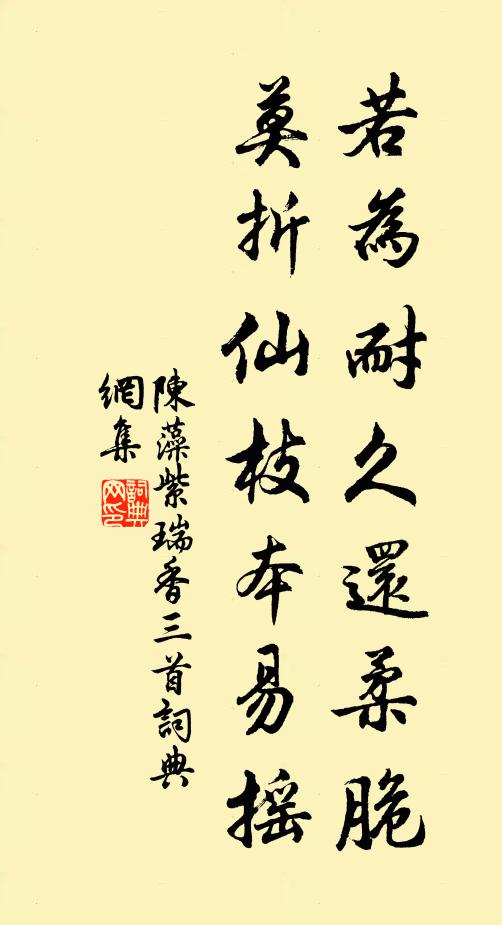 若為耐久還柔脆
莫折仙枝本易搖
陳藻紫瑞香三首詞典
網集
詞典
网印